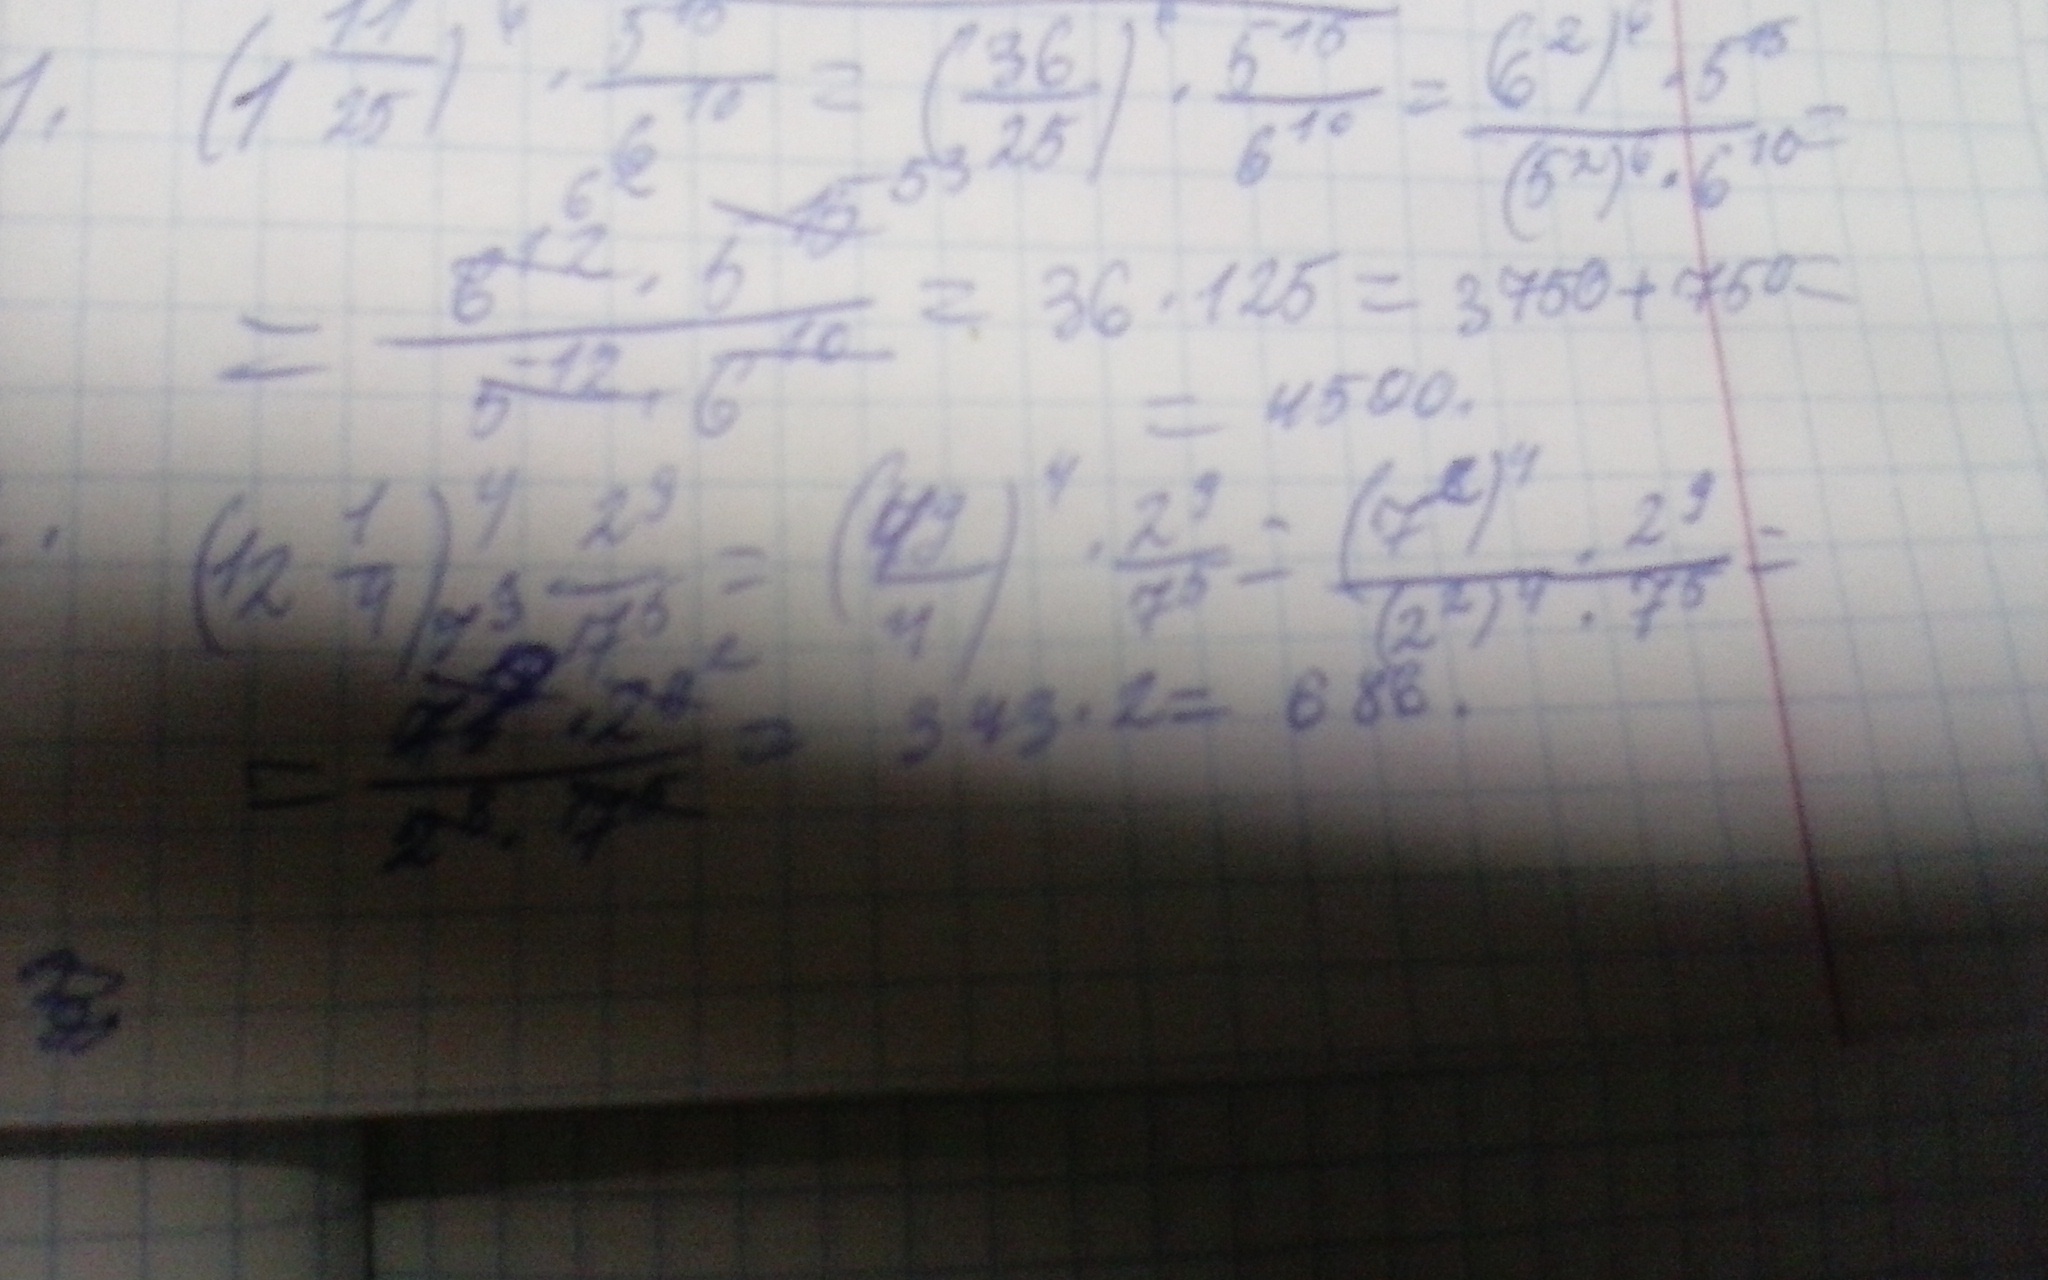 1. (1 11/25)^6 · 5^15/6^10 = (36/25)^6 · 5^15/6^10 = (6^2)^6 · 5^15 / (5^2)^6 · 6^10 =
= 6^12 · 5^15 / 5^12 · 6^10 = 36 · 125 = 3750 + 750 =
= 4500.
(12 1/4)^4 2^9/7^5 = (49/4)^4 · 2^9/7^5 = (7^2)^4 · 2^9 / (2^2)^4 · 7^5 =
= 7^8 · 2^9 / 2^8 · 7^5 = 343 · 2 = 686.